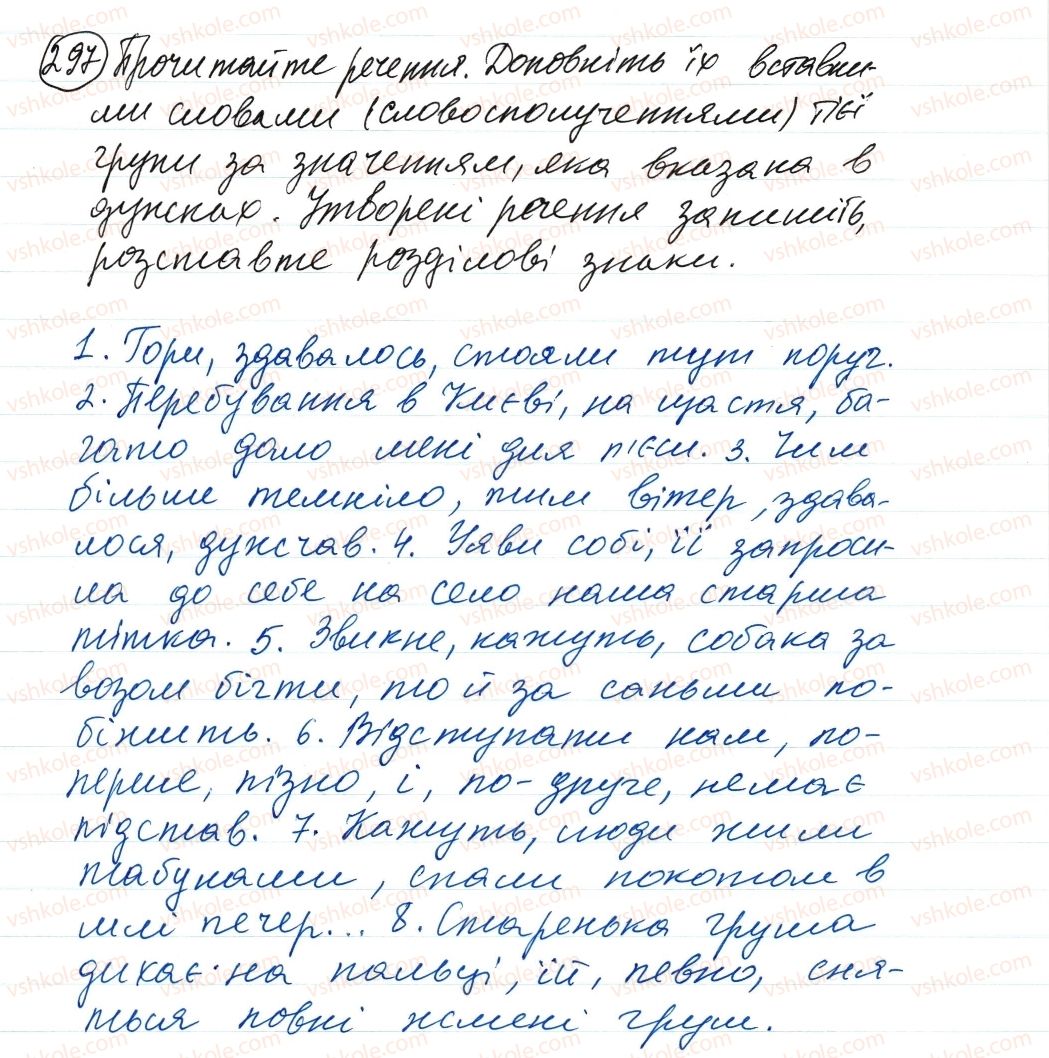 297 Прочитайте речення. Доповніть їх вставни-
ми словами (словосполученнями) тієї
групи за значенням, яка вказана в
дужках. Утворені речення запишіть,
розставте розділові знаки.
1. Гори, здавалось, стояли тут поруч.
2. Перебування в Києві, на щастя, ба-
гато дало мені для п'єси. 3. Чим
більше темніло, тим вітер, здава-
лося, дужчав. 4. Уяви собі, її запроси-
ла до себе на село наша старша
тітка. 5. Звикне, кажуть, собака за
возом бігти, то й за саньми по-
біжить. 6. Відступати нам, по-
перше, пізно, і, по-друге, немає
підстав. 7. Кажуть, люди жили
табунами, спали покотом в
млі печер... 8. Старенька груша
дихає на пальці, їй, певно, сня-
ться повні жмені груш.